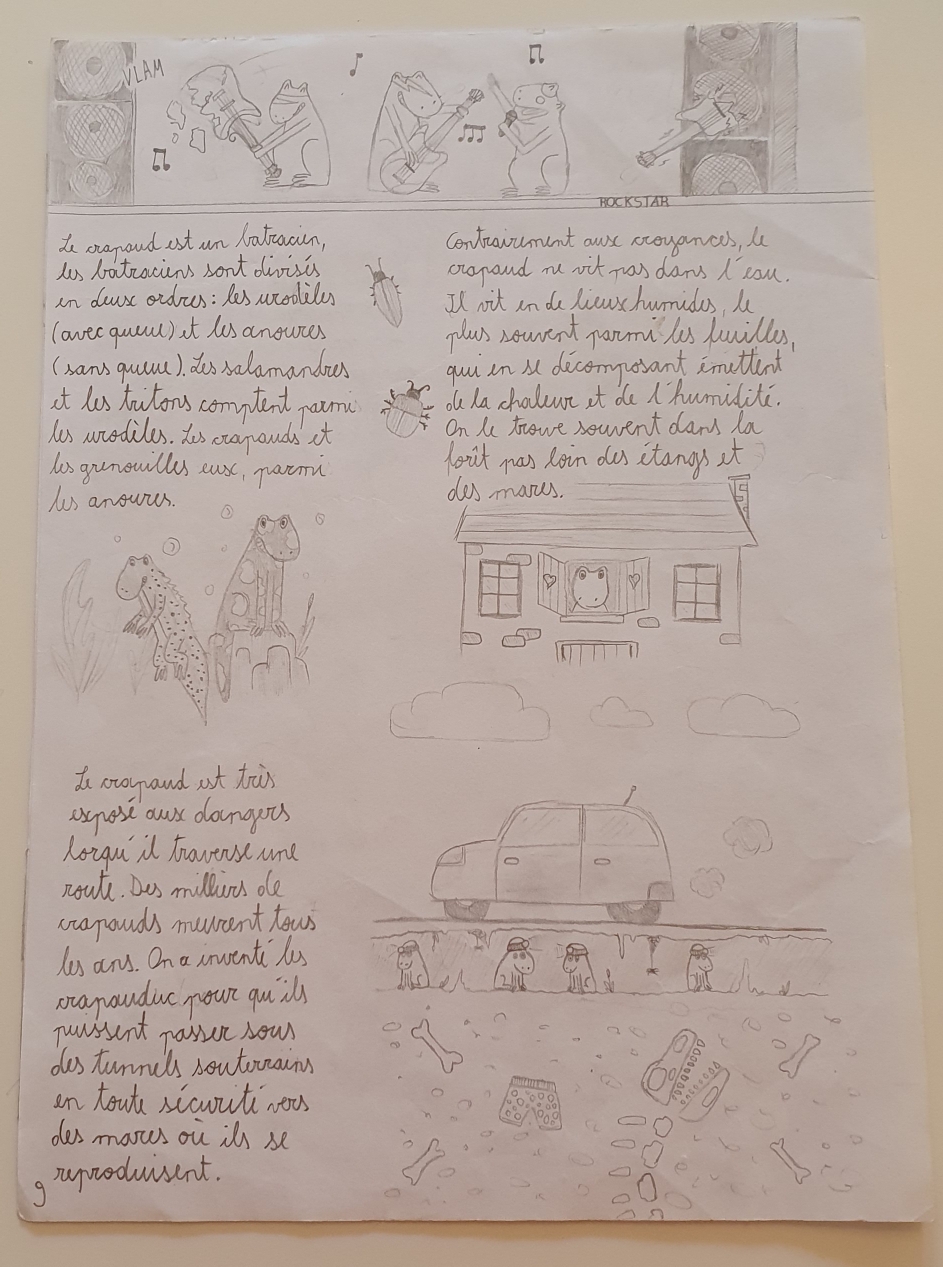 VLAM
ROCKSTAR
Le crapaud est un batracien,
les batraciens sont divisés
en deux ordres : les urodèles
(avec queue) et les anoures
(sans queue). Les salamandres
et les tritons comptent parmi
les urodèles. Les crapauds et
les grenouilles eux, parmi
les anoures.
Contrairement aux croyances, le
crapaud ne vit pas dans l'eau.
Il vit en de lieux humides, le
plus souvent parmi les feuilles,
qui en se décomposant émettent
de la chaleur et de l'humidité.
On le trouve souvent dans la
forêt pas loin des étangs et
des mares.
Le crapaud est très
exposé aux dangers
lorqu'il traverse une
route. Des milliers de
crapauds meurent tous
les ans. On a inventé les
crapauduc pour qu'ils
puissent passer sous
des tunnels souterrains
en toute sécurité vers
des mares où ils se
reproduisent.
9